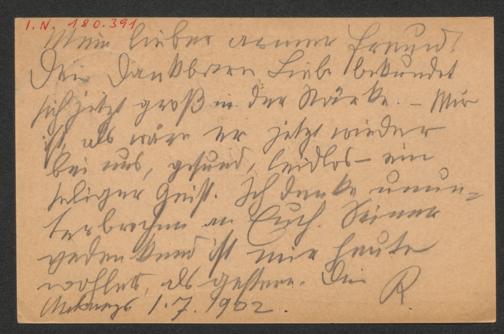 I.N. 180.391
Mein lieber armer Freund!
Die Dankbaren Liebe bekundet
sich jetzt groß in der Stärke. – Mir
ist, als wäre er jetzt wieder
bei uns, gesund, leidlos – ein
seliger Geist. Ich denke unun=
terbrochen an Euch. Seiner
gedenkend ist mir heute
wohler, als gestern. Dein
1.7.1902. R